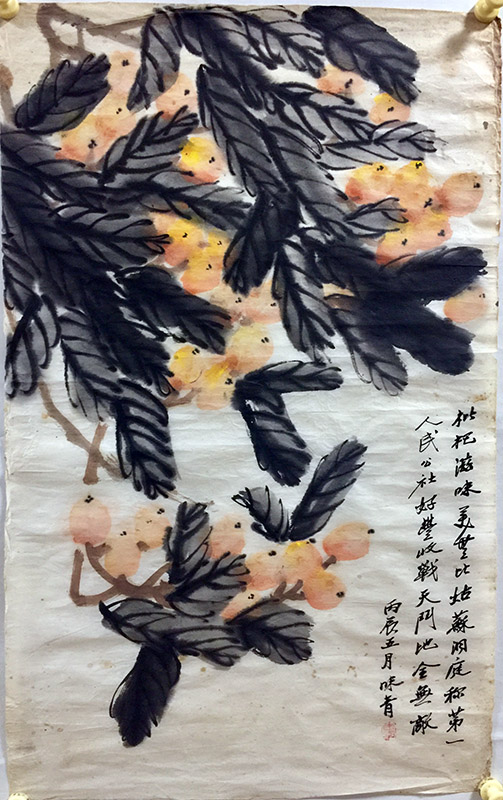 枇杷滋味美無比姑蘇洞庭称第一
人民公社好豐收戰天鬥地全無敵
丙辰五月味青